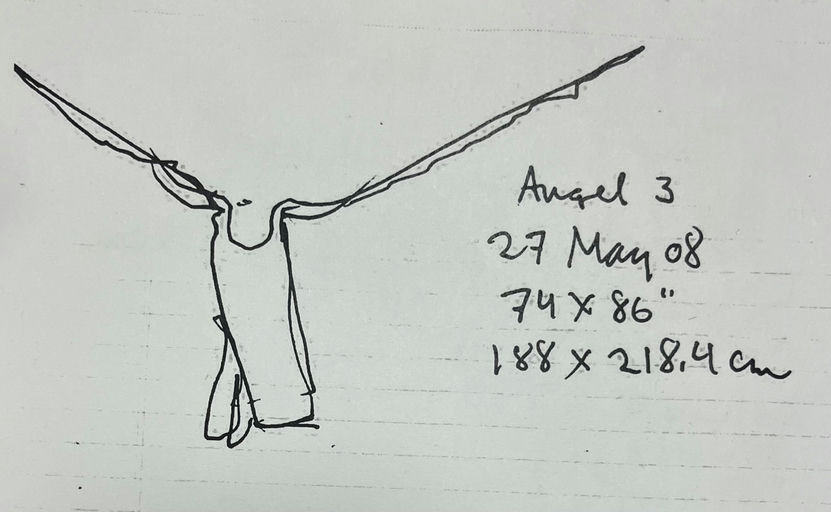 Angel 3
27 May 08
74 x 86"
188 x 218.4 cm